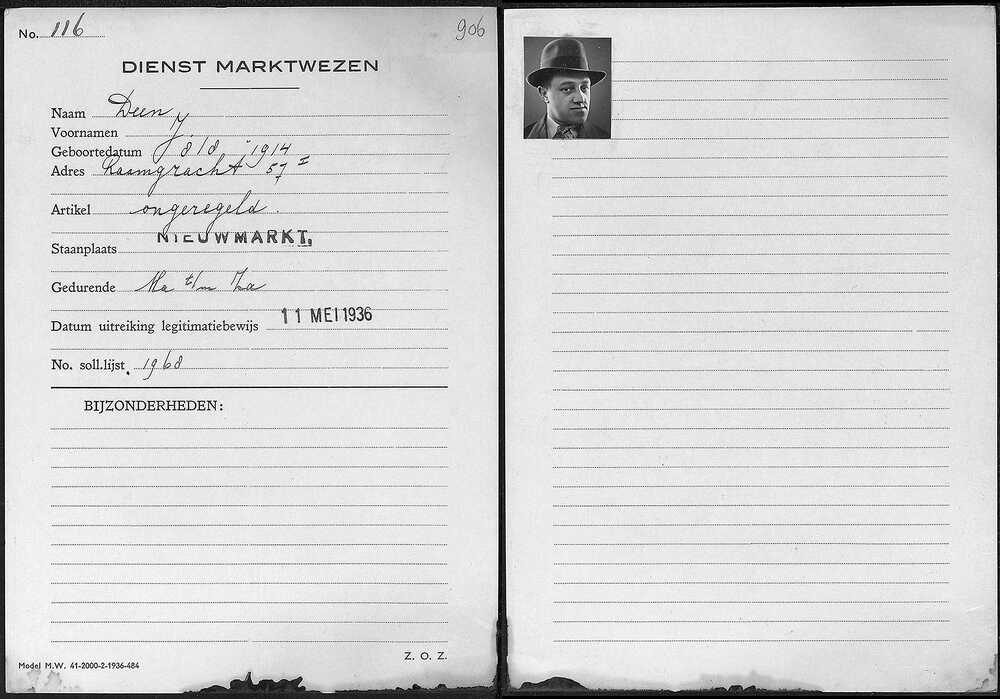 No. 116
906
DIENST MARKTWEZEN
Naam Deen
Voornamen J.
Geboortedatum 8/8 1914
Adres Raamgracht 57 I
Artikel ongeregeld.
Staanplaats NIEUWMARKT.
Gedurende Ma t/m Za
Datum uitreiking legitimatiebewijs 11 MEI 1936
No. soll.lijst. 1968
BIJZONDERHEDEN:
Z. O. Z.
Model M.W. 41-2000-2-1936-484